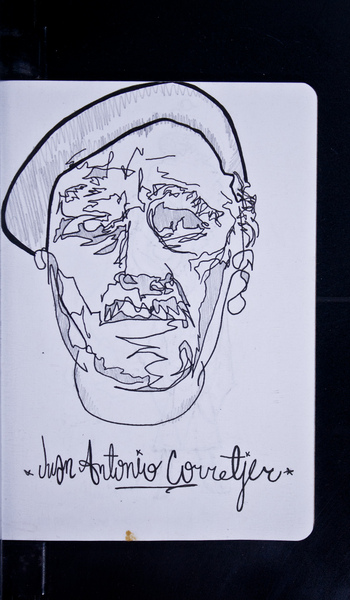 *Juan Antonio Corretjer*